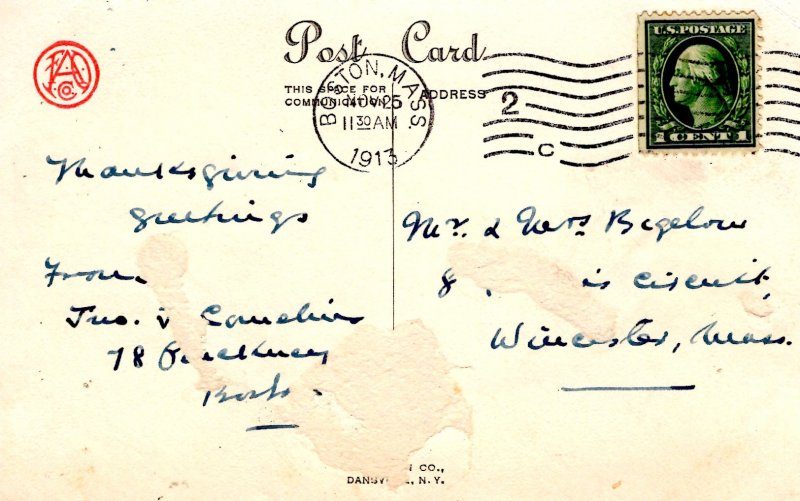 Post Card
THIS SPACE FOR
COMMUNICATION
ADDRESS
BOSTON, MASS.
NOV 25
11 30 AM
1913
2
C
U.S. POSTAGE
1 CENT 1
Thanksgiving
greetings
From
Jno. & Cornelius
78 Pinckney
Bost
Mr. & Mrs Bigelow
8 is Circuit,
Worcester, Mass.
CO.,
DANSVILLE, N.Y.